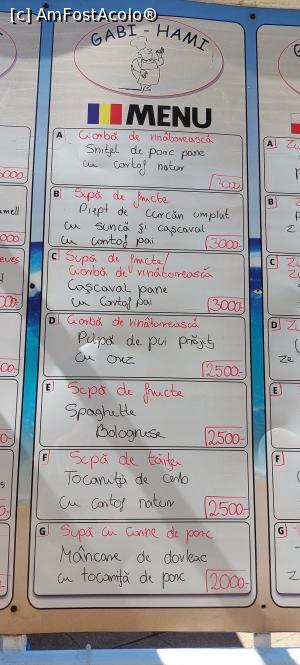 [c] AmFostAcolo®
GABI - HAMI
MENU
A Ciorbă de vînătorească
Snițel de porc pane
cu cartof natur
3000
B Supă de fructe
Piept de curcan umplut
cu suncă și cașcaval
cu cartof pai
3000-
C Supă de fructe/
Ciorbă de vinătorească
Cașcaval pane
cu cartof pai
3000-
D Ciorbă de vinătorească
Pulpă de pui prăjit
cu orez
2500-
E Supă de fructe
Spaghette
Bolognese
2500-
F Supă de tăiței
Tocăniță de cerb
cu cartof natur
2500-
G Supă cu carne de porc
Mâncare de dovleac
cu tocăniță de porc
2000-